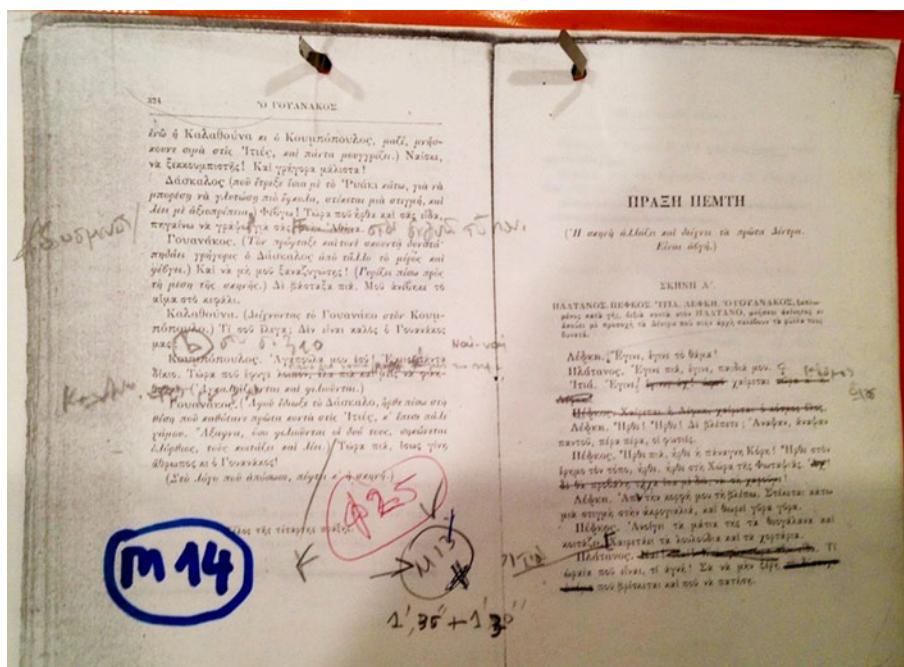 324
Ὁ ΓΟΥΑΝΑΚΟΣ
ἐνῶ ἡ Καλαθούνα κι ὁ Κουμπόπουλος, μαζί, μνήσ-
κουνε σιμὰ στὶς Ἰτιές, καὶ πάντα μουγγρίζει.) Ναίσκε,
νὰ ξεκουμπιστῆς! Καὶ γρήγορα μάλιστα!
Δάσκαλος (ποὺ ἔτρεξε ἴσια μὲ τὸ Ῥυάκι κάτω, γιὰ νὰ
μπορέση νὰ γλυτώση πιὸ ἔφκολα, στέκεται μιὰ στιγμή, καὶ
λέει μὲ ἀξιοπρέπεια) Φέβγω! Τώρα ποὺ ἦρθα καὶ σᾶς εἶδα,
πηγαίνω νὰ γράψω γιὰ σᾶς
Γουανάκος. (Τὸν
πηδάει γρήγορις ὁ Δάσκαλος ἀπὸ τἄλλο τὸ μέρος καὶ
φέβγει.) Καὶ νὰ μὴ μοῦ ξαναζυγώσης! (Γυρίζει πίσω πρὸς
τὴ μέση τῆς σκηνῆς.) Δὲ βάσταξα πιά. Μοῦ ἀνέβηκε τὸ
αἷμα στὸ κεφάλι.
Καλαθούνα. (Δείχνοντας τὸ Γουανάκο στὸν Κουμ-
πόπουλο.) Τί σοῦ ἔλεγα; Δὲν εἶναι καλὸς ὁ Γουανάκος
μας;
Κουμπόπουλος. Ἀγαπούλα μου ἐσύ!
δίκιο. Τώρα ποὺ ἔφυγε λοιπόν, ἔλα πιὰ καὶ
(Ἀγκαλιάζονται καὶ φιλιοῦνται.)
Γουανάκος. (Ἀφοῦ ἔδιωξε τὸ Δάσκαλο, ἦρθε πίσω στὴ
θέση ποὺ καθότανε πρῶτα κοντὰ στὶς Ἰτιές, κ' ἔπεσε πάλι
χάμου. Ἄξαφνα, ὅσο φιλιοῦνται οἱ δυό τους, σηκώνεται
ὁλόρθος, τοὺς κοιτάζει καὶ λέει.) Τώρα πιά, ἴσως γίνη
ἄθρωπος κι ὁ Γουανάκος!
(Στὸ λόγο ποὺ ἀπόσωσε, πέφτει κ' ἡ σκηνή.)
τῆς τέταρτης πράξης.
m 14
Φ25
M 13
1', 35'' + 1' 30''
ΠΡΑΞΗ ΠΕΜΤΗ
(Ἡ σκηνὴ ἀλλάζει καὶ δείχνει τὰ πρῶτα Δέντρα.
Εἶναι ἀβγή.)
ΣΚΗΝΗ Α'.
ΠΛΑΤΑΝΟΣ, ΠΕΦΚΟΣ, ἸΤΙΑ, ΛΕΦΚΗ, Ὁ ΓΟΥΑΝΑΚΟΣ,
μένος κατὰ γῆς, δεξιὰ κοντὰ στὸν ΠΛΑΤΑΝΟ, μνήσκει ἀκίνητος κι
ἀκούει μὲ προσοχὴ τὰ Δέντρα ποὺ στὴν ἀρχὴ σαλέβουν τὰ φύλλα τους
δυνατά.
Λέφκη. Ἔγινε, ἔγινε τὸ θάμα!
Πλάτανος. Ἔγινε πιά, ἔγινε, παιδιά μου.
Ἰτιά. Ἔγινε! χαίρεται
Πέφκος. Χαίρεται ἡ Λέφκα, χαίρεται ὁ κόσμος ὅλος.
Λέφκη. Ἦρθε! Ἦρθε! Δὲ βλέπετε; Ἄναψαν, ἄναψαν
παντοῦ, πέρα πέρα, οἱ φωτιές.
Πέφκος. Ἦρθε πιά, ἦρθε ἡ πάναγνη Κόρη! Ἦρθε στὸν
ἔρημο τὸν τόπο, ἦρθε, ἦρθε στὴ Χώρα τῆς Φωταψιᾶς.
Λέφκη. Ἀπ' τὴν κορφή μου τὴ βλέπω. Στέκεται κάτω
μιὰ στιγμὴ στὴν ἀκρογιαλιά, καὶ θωρεῖ γύρα γύρα.
Πέφκος. Ἀνοίγει τὰ μάτια της τὰ θεογάλανα καὶ
κοιτάζει. Χαιρετάει τὰ λουλούδια καὶ τὰ χορτάρια.
Ἰτιά
Πλάτανος. Τί
ὡραία ποὺ εἶναι, τί ἁγνή! Σὰ νὰ μὴν ξέρη
ποὺ βρίσκεται καὶ ποὺ νὰ πατήση.